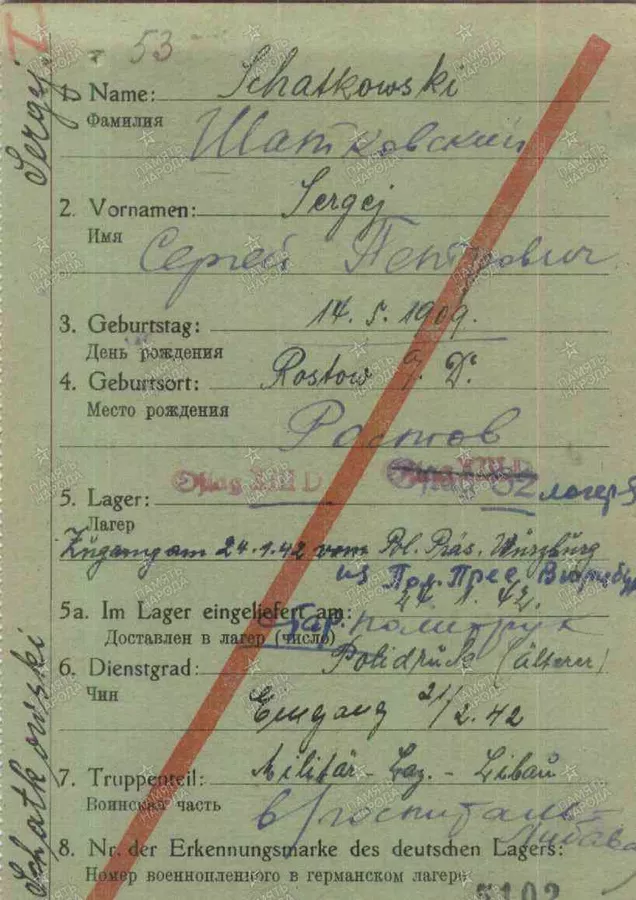 I
53
Sergej
Schatkowski
1. Name: Schatkowski
Фамилия
Шатковский
2. Vornamen: Sergej
Имя
Сергей Петрович
3. Geburtstag: 14. 5. 1909.
День рождения
4. Geburtsort: Rostow
Место рождения
Ростов
Oflag XIII D
Oflag XIII D
62 лагерь
5. Lager:
Лагер
Zugang am 24.1.42 vom Pol. Präs. Würzburg
из Пол. През. Вюрцбург
5a. Im Lager eingeliefert am: 24. 1. 42.
Доставлен в лагер (число)
политрук
6. Dienstgrad: Politdruck (älterer)
Чин
Eingang 21/2.42
7. Truppenteil: Militär-Laz.-Libau
Воинская часть
в/госпиталь Либава
8. Nr. der Erkennungsmarke des deutschen Lagers:
Номер военнопленного в германском лагере
5102
ПАМЯТЬ НАРОДА